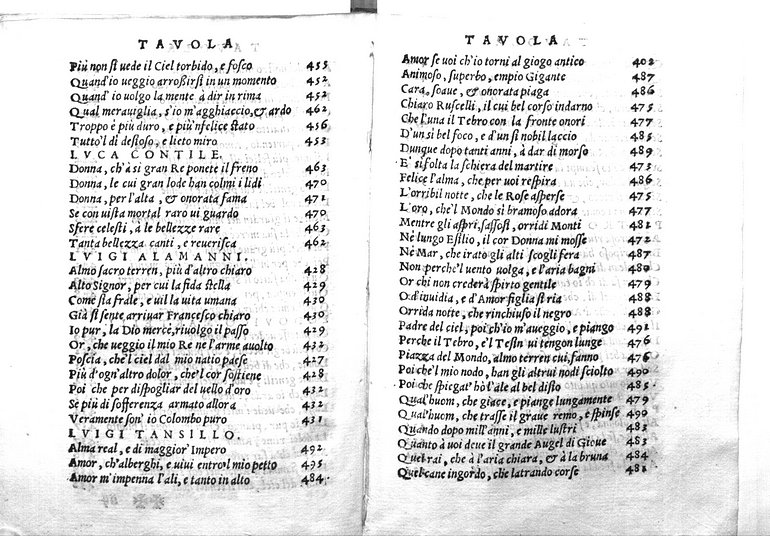 TAVOLA
Più non si uede il Ciel torbido, e fosco 455
Quand'io ueggio arroßirsi in un momento 452
Quand' io uolgo la mente à dir in rima 452
Qual merauiglia, s'io m'agghiaccio, & ardo 462
Troppo è più duro, e più'nfelice stato 456
Tutto'l dì desioso, e lieto miro 453
LVCA CONTILE.
Donna, ch'à sì gran Re ponete il freno 463
Donna, le cui gran lode han colmi i lidi 470
Donna, per l'alta, & onorata fama 471
Se con uista mortal raro ui guardo 470
Sfere celesti, à le bellezze rare 463
Tanta bellezza canti, e reuerisca 462
LVIGI ALAMANNI.
Almo sacro terren, più d'altro chiaro 428
Alto Signor, per cui la fida stella 429
Come sia frale, e uil la uita umana 430
Già si sente arriuar Francesco chiaro 430
Io pur, la Dio mercè, riuolgo il passo 429
Or, che ueggio il mio Re ne l'arme auolto 432
Poscia, che'l ciel dal mio natio paese 427
Più d'ogn'altro dolor, che'l cor sostiene 428
Poi che per dispogliar del uello d'oro 432
Se più di sofferenza armato allora 432
Veramente son' io Colombo puro 431
LVIGI TANSILLO.
Alma real, e di maggior' Impero 492
Amor, ch'alberghi, e uiui entro'l mio petto 495
Amor m'impenna l'ali, e tanto in alto 484
TAVOLA
Amor se uoi ch'io torni al giogo antico 402
Animoso, superbo, empio Gigante 487
Cara, soaue, & onorata piaga 486
Chiaro Ruscelli, il cui bel corso indarno 475
Che l'una il Tebro con la fronte onori 477
D'un sì bel foco, e d'un sì nobil laccio 485
Dunque dopo tanti anni, à dar di morso 489
E' sì folta la schiera del martire 473
Felice l'alma, che per uoi respira 486
L'orribil notte, che le Rose asperse 475
L'oro, che'l Mondo sì bramoso adora 477
Mentre gli aspri, sassosi, orridi Monti 481
Nè lungo Esilio, il cor Donna mi mosse 472
Nè Mar, che irato gli alti scogli fera 487
Non perche'l uento uolga, e l'aria bagni 480
Or chi non crederà spirto gentile 479
O d'inuidia, e d'Amor figlia sì ria 488
Orrida notte, che rinchiuso il negro 488
Padre del ciel, poi ch'io m'aueggio, e piango 491
Perche il Tebro, e'l Tesin ui tengon lunge 476
Piazza del Mondo, almo terren cui fanno 476
Poi che'l mio nodo, han gli altrui nodi sciolto 490
Poi che spiegat' hò l'ale al bel disio 485
Qual'huom, che giace, e piange lungamente 479
Qual'huom, che trasse il graue remo, e spinse 490
Quando dopo mill'anni, e mille lustri 483
Quanto à uoi deue il grande Augel di Gioue 483
Quei rai, che à l'aria chiara, & à la bruna 484
Quel cane ingordo, che latrando corse 481